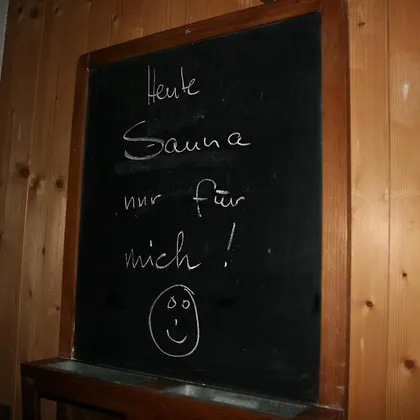 Heute
Sauna
nur für
mich!